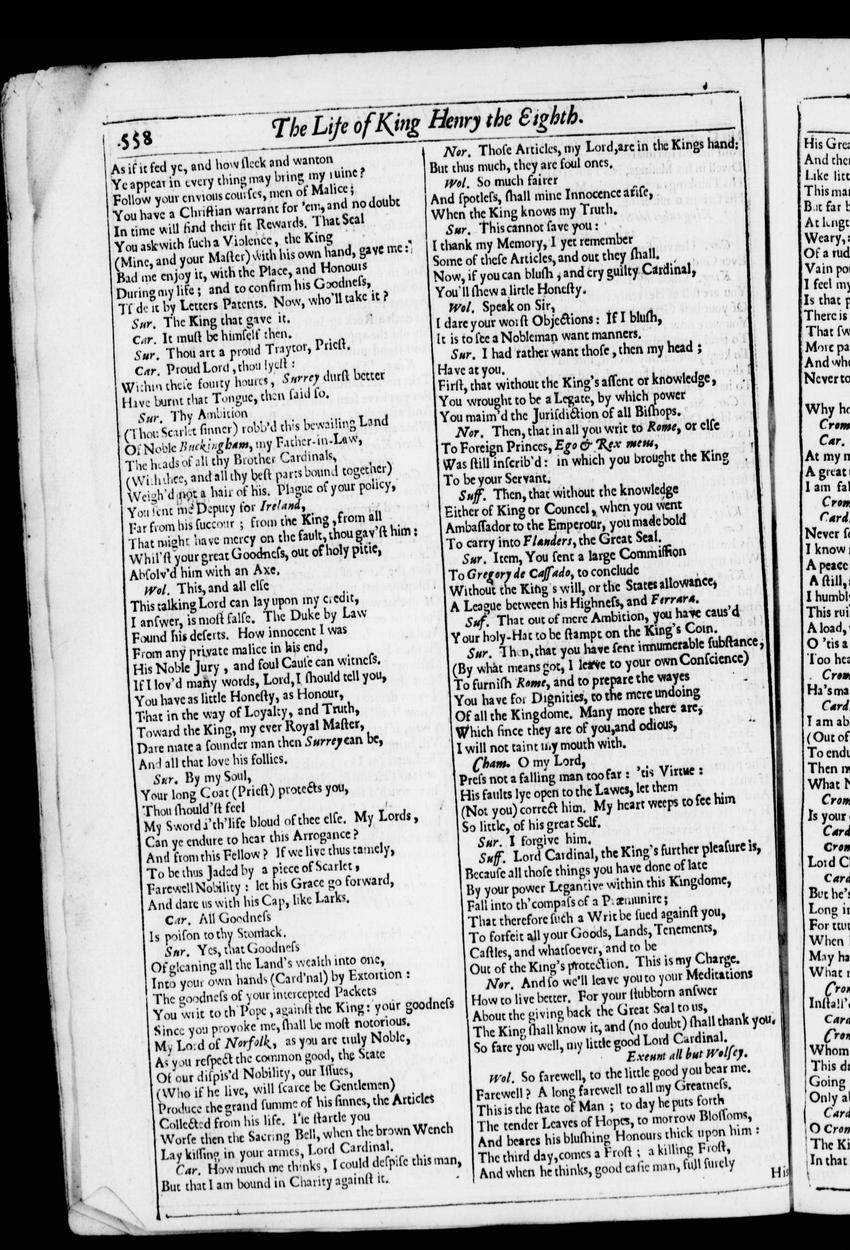 558
The Life of King Henry the Eighth.
As if it fed ye, and how ſleek and wanton
Ye appear in every thing may bring my ruine?
Follow your envious courſes, men of Malice;
You have a Chriſtian warrant for 'em, and no doubt
In time will find their fit Rewards. That Seal
You ask with ſuch a Violence, the King
(Mine, and your Maſter) with his own hand, gave me:
Bad me enjoy it, with the Place, and Honours
During my life; and to confirm his Goodneſs,
Ti'de it by Letters Patents. Now, who'll take it?
Sur. The King that gave it.
Car. It muſt be himſelf then.
Sur. Thou art a proud Traytor, Prieſt.
Car. Proud Lord, thou lyeſt:
Within theſe fourty houres, Surrey durſt better
Have burnt that Tongue, then ſaid ſo.
Sur. Thy Ambition
(Thou Scarlet ſinner) robb'd this bewailing Land
Of Noble Buckingham, my Father-in-Law,
The heads of all thy Brother Cardinals,
(With thee, and all thy beſt parts bound together)
Weigh'd not a hair of his. Plague of your policy,
You ſent me Deputy for Ireland,
Far from his ſuccour; from the King, from all
That might have mercy on the fault, thou gav'ſt him:
Whil'ſt your great Goodneſs, out of holy pitie,
Abſolv'd him with an Axe.
Wol. This, and all elſe
This talking Lord can lay upon my credit,
I anſwer, is moſt falſe. The Duke by Law
Found his deſerts. How innocent I was
From any private malice in his end,
His Noble Jury, and foul Cauſe can witneſs.
If I lov'd many words, Lord, I ſhould tell you,
You have as little Honeſty, as Honour,
That in the way of Loyalty, and Truth,
Toward the King, my ever Royal Maſter,
Dare mate a ſounder man then Surrey can be,
And all that love his follies.
Sur. By my Soul,
Your long Coat (Prieſt) protects you,
Thou ſhould'ſt feel
My Sword i'th'life bloud of thee elſe. My Lords,
Can ye endure to hear this Arrogance?
And from this Fellow? If we live thus tamely,
To be thus Jaded by a piece of Scarlet,
Farewell Nobility: let his Grace go forward,
And dare us with his Cap, like Larks.
Car. All Goodneſs
Is poiſon to thy Stomack.
Sur. Yes, that Goodneſs
Of gleaning all the Land's wealth into one,
Into your own hands (Card'nal) by Extortion:
The goodneſs of your intercepted Packets
You writ to th'Pope, againſt the King: your goodneſs
Since you provoke me, ſhall be moſt notorious.
My Lord of Norfolk, as you are truly Noble,
As you reſpect the common good, the State
Of our diſpis'd Nobility, our Iſſues,
(Who if he live, will ſcarce be Gentlemen)
Produce the grand ſumme of his ſinnes, the Articles
Collected from his life. I'le ſtartle you
Worſe then the Sacring Bell, when the brown Wench
Lay kiſſing in your armes, Lord Cardinal.
Car. How much me thinks, I could deſpiſe this man,
But that I am bound in Charity againſt it.
Nor. Thoſe Articles, my Lord, are in the Kings hand:
But thus much, they are foul ones.
Wol. So much fairer
And ſpotleſs, ſhall mine Innocence ariſe,
When the King knows my Truth.
Sur. This cannot ſave you:
I thank my Memory, I yet remember
Some of theſe Articles, and out they ſhall.
Now, if you can bluſh, and cry guilty Cardinal,
You'll ſhew a little Honeſty.
Wol. Speak on Sir,
I dare your worſt Objections: If I bluſh,
It is to ſee a Nobleman want manners.
Sur. I had rather want thoſe, then my head;
Have at you.
Firſt, that without the King's aſſent or knowledge,
You wrought to be a Legate, by which power
You maim'd the Jurisdiction of all Biſhops.
Nor. Then, that in all you writ to Rome, or elſe
To Foreign Princes, Ego & Rex meus,
Was ſtill inſcrib'd: in which you brought the King
To be your Servant.
Suff. Then, that without the knowledge
Either of King or Councel, when you went
Ambaſſador to the Emperour, you made bold
To carry into Flanders, the Great Seal.
Sur. Item, You ſent a large Commiſſion
To Gregory de Caſſado, to conclude
Without the King's will, or the States allowance,
A League between his Highneſs, and Ferrara.
Suf. That out of mere Ambition, you have caus'd
Your holy-Hat to be ſtampt on the King's Coin.
Sur. Then, that you have ſent innumerable ſubſtance,
(By what means got, I leave to your own Conſcience)
To furniſh Rome, and to prepare the wayes
You have for Dignities, to the mere undoing
Of all the Kingdome. Many more there are,
Which ſince they are of you, and odious,
I will not taint my mouth with.
Cham. O my Lord,
Preſs not a falling man too far: 'tis Virtue:
His faults lye open to the Lawes, let them
(Not you) correct him. My heart weeps to ſee him
So little, of his great Self.
Sur. I forgive him.
Suff. Lord Cardinal, the King's further pleaſure is,
Becauſe all thoſe things you have done of late
By your power Legantive within this Kingdome,
Fall into th'compaſs of a Præmunire;
That therefore ſuch a Writ be ſued againſt you,
To forfeit all your Goods, Lands, Tenements,
Caſtles, and whatſoever, and to be
Out of the King's protection. This is my Charge.
Nor. And ſo we'll leave you to your Meditations
How to live better. For your ſtubborn anſwer
About the giving back the Great Seal to us,
The King ſhall know it, and (no doubt) ſhall thank you.
So fare you well, my little good Lord Cardinal.
Exeunt all but Wolſey.
Wol. So farewell, to the little good you bear me.
Farewell? A long farewell to all my Greatneſs.
This is the ſtate of Man; to day he puts forth
The tender Leaves of Hopes, to morrow Bloſſoms,
And beares his bluſhing Honours thick upon him:
The third day, comes a Froſt; a killing Froſt,
And when he thinks, good eaſie man, full ſurely
His